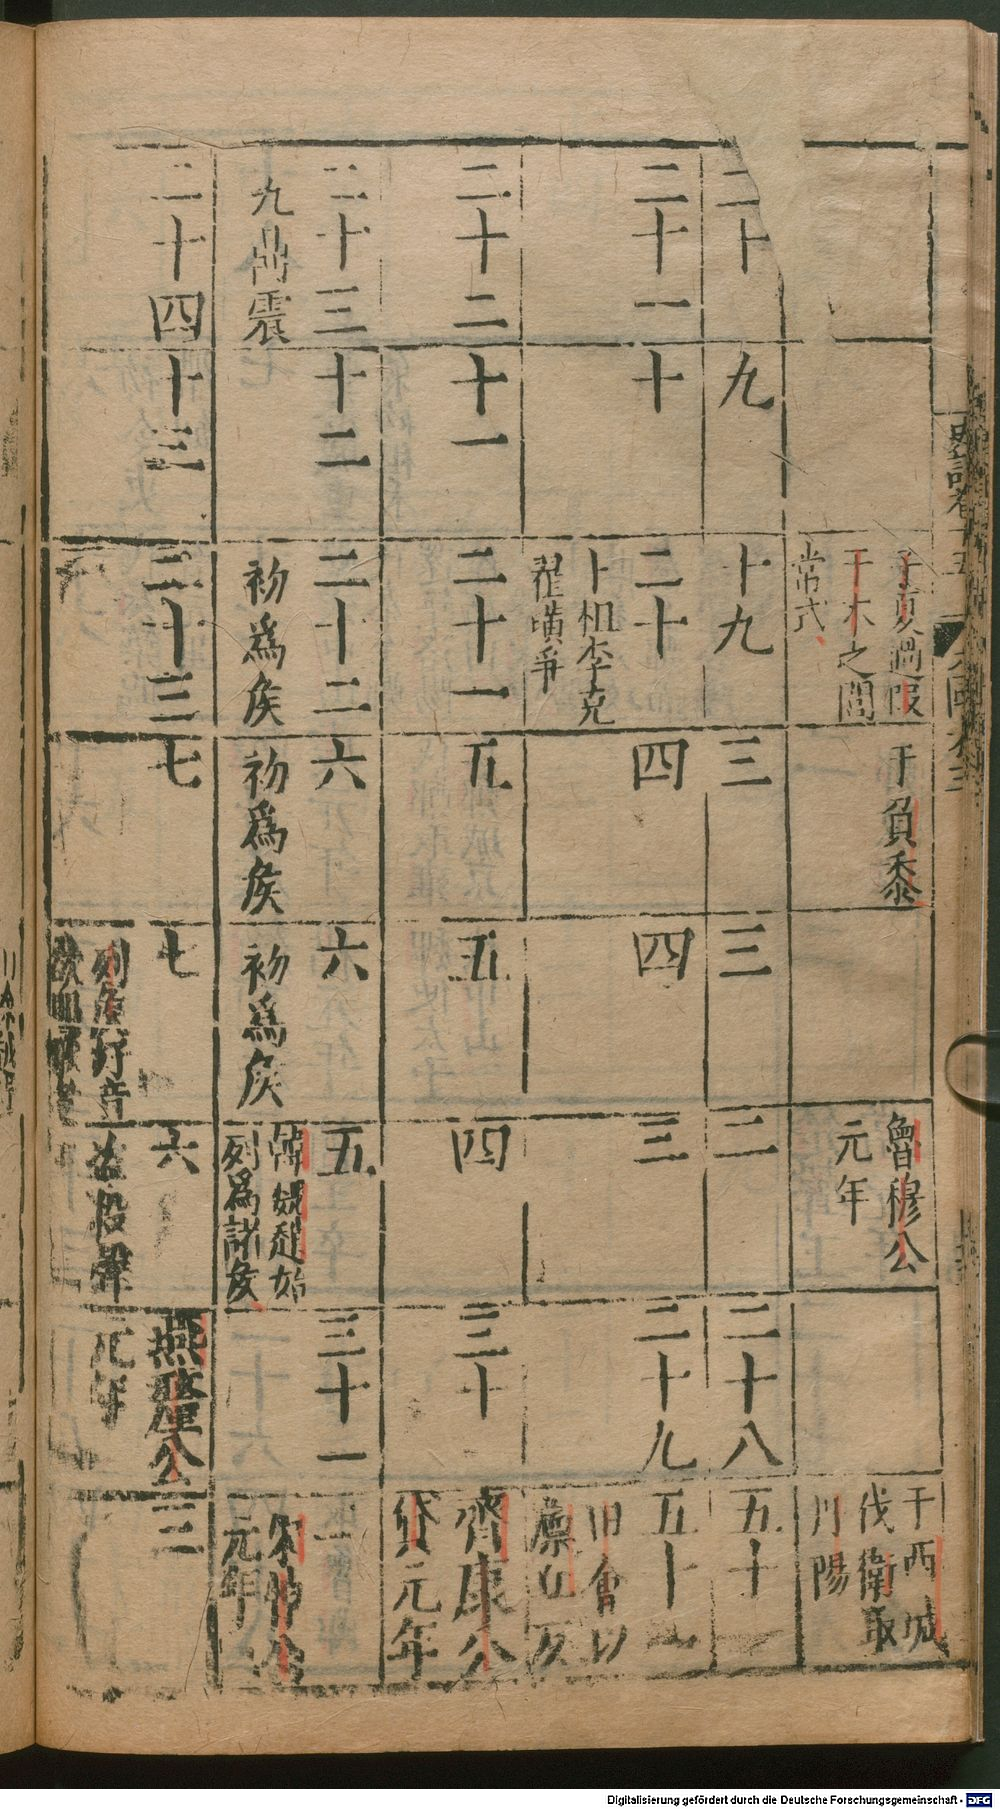 子夏過段
干木之閭
常式
于負黍
魯穆公
元年
伐衛取
二十
九
十九
三
三
二
二十八
五十
二十一
十
二十
卜相李克
翟璜爭
四
四
三
二十九
五十一
田會以
廩丘反
二十二
十一
二十一
五
五
四
三十
齊康公
貸元年
二十三
九鼎震
十二
二十二
初為侯
六
初為侯
六
初為侯
五
韓魏趙始
列為諸侯
三十一
一
元年
二十四
十三
二十三
七
七
列侯好音
六
燕釐公
元年
三
Digitalisierung gefördert durch die Deutsche Forschungsgemeinschaft - DFG